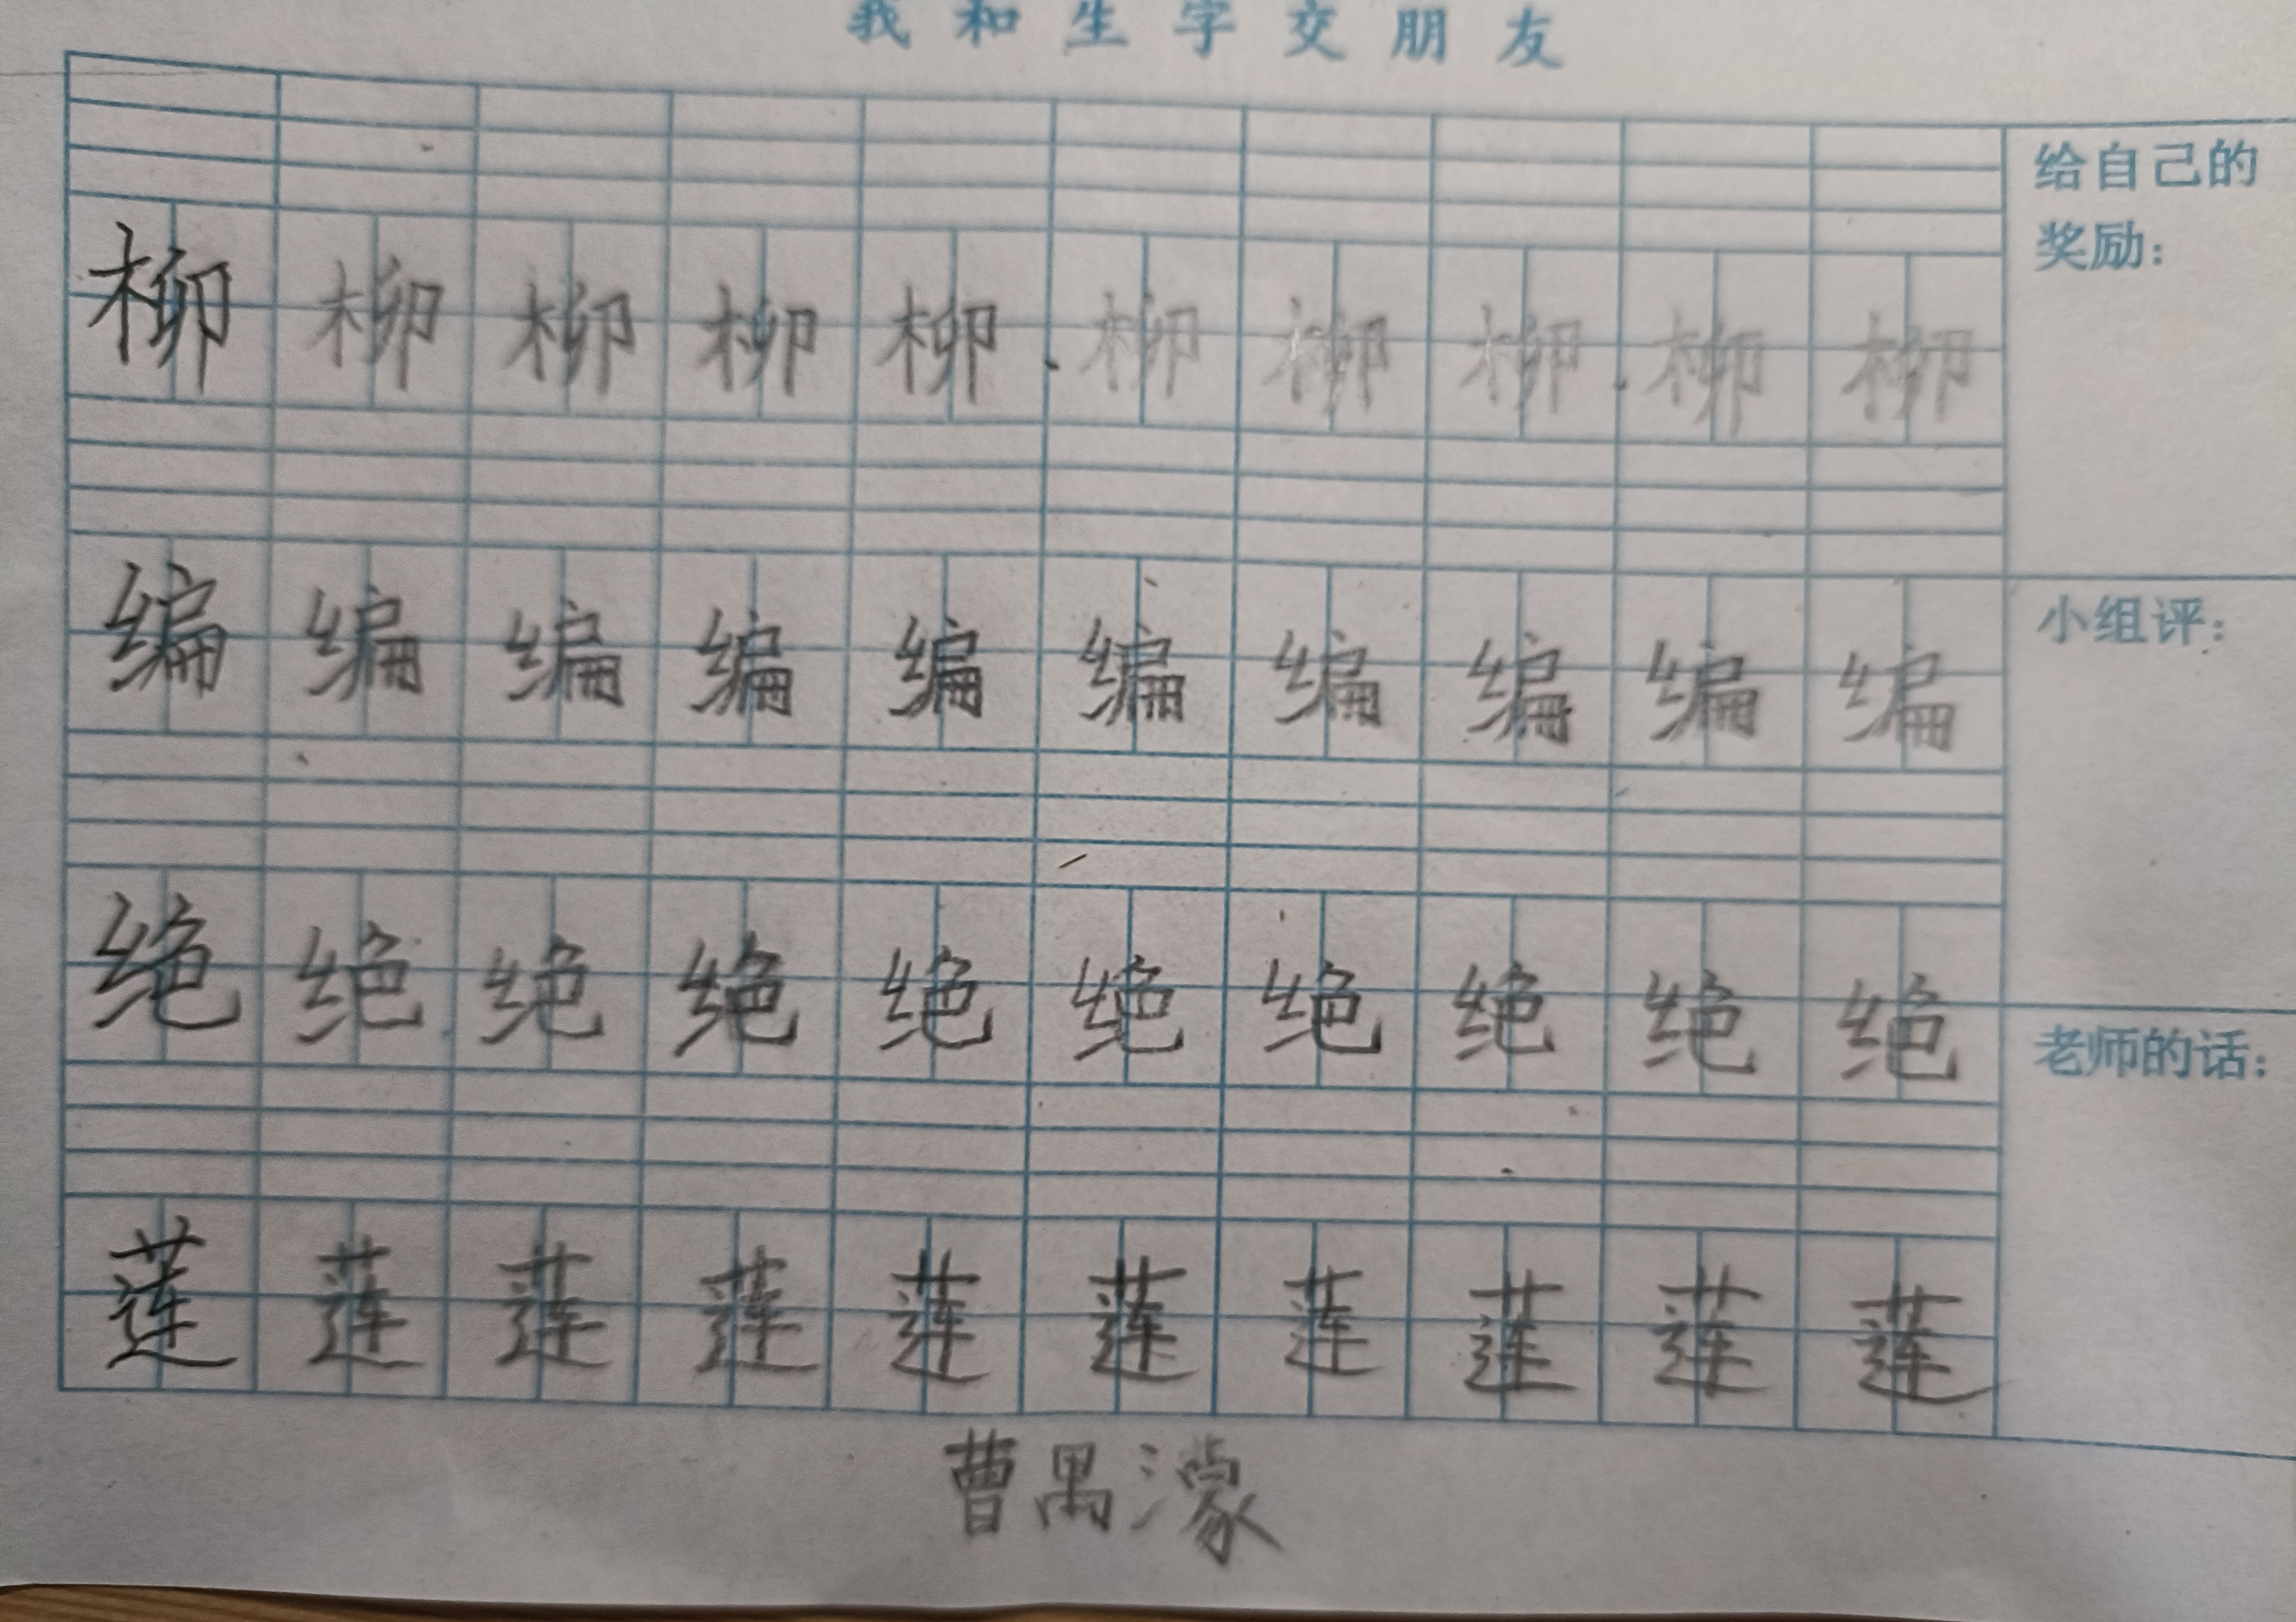 我和生字交朋友
给自己的
奖励：
柳柳柳柳柳柳柳柳柳柳
小组评：
编编编编编编编编编编
绝绝绝绝绝绝绝绝绝绝
老师的话：
莲莲莲莲莲莲莲莲莲莲
曹禺濛